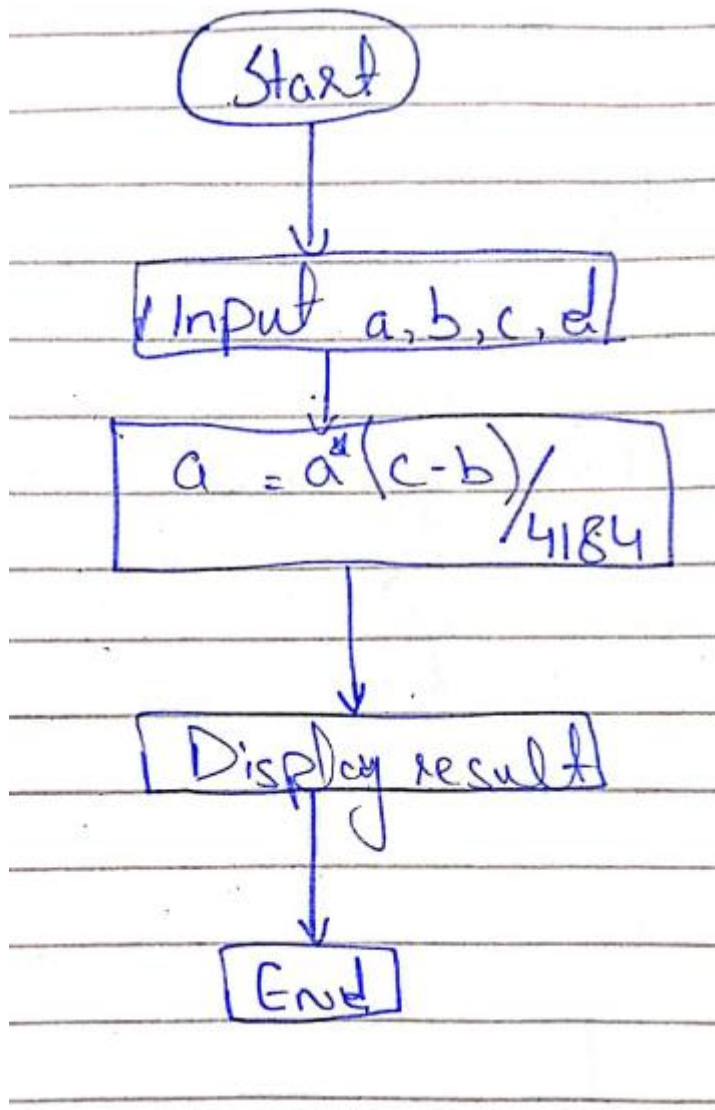 Start
Input a, b, c, d
a = a*(c-b)/
4184
Display result
End